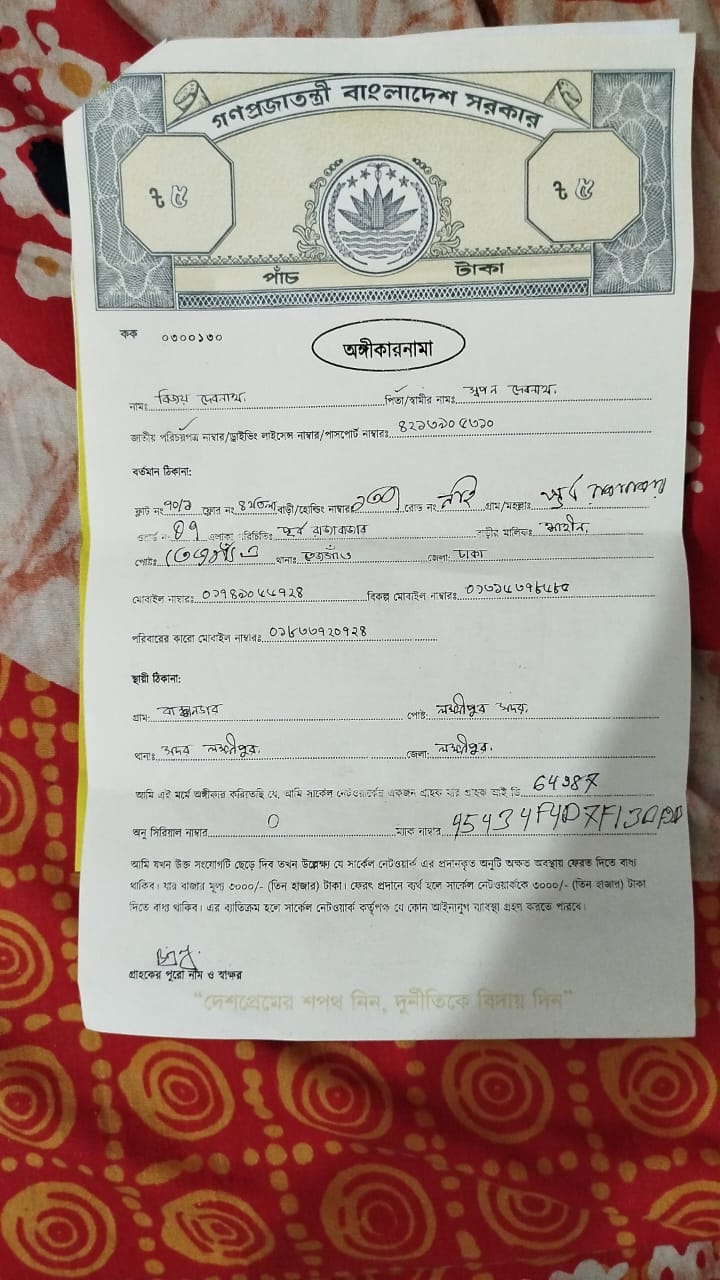 গণপ্রজাতন্ত্রী বাংলাদেশ সরকার
৳ ৫
৳ ৫
পাঁচ টাকা
কক ০৩০০১৩০
অঙ্গীকারনামা
নামঃ বিজয় দেবনাথ. পিতা/স্বামীর নামঃ স্বপন দেবনাথ.
জাতীয় পরিচয়পত্র নাম্বার/ড্রাইভিং লাইসেন্স নাম্বার/পাসপোর্ট নাম্বারঃ
বর্তমান ঠিকানা:
ফ্লাট নং ১০/১ ফ্লোর নং ৪র্থতলা বাড়ী/হোল্ডিং নাম্বারঃ রোড নং নাই গ্রাম/মহল্লাঃ পূর্ব রাজাবাজার
এলাকা পরিচিতিঃ পূর্ব রাজাবাজার বাড়ীর মালিকঃ
পোষ্টঃ থানাঃ তেজগাঁও জেলা: ঢাকা
মোবাইল নাম্বারঃ বিকল্প মোবাইল নাম্বারঃ
পরিবারের কারো মোবাইল নাম্বারঃ
স্থায়ী ঠিকানা:
গ্রাম: পোষ্ট: লক্ষ্মীপুর সদর.
থানাঃ সদর লক্ষ্মীপুর. জেলা: লক্ষ্মীপুর.
আমি এই মর্মে অঙ্গীকার করিতেছি যে, আমি সার্কেল নেটওয়ার্কের একজন গ্রাহক যার গ্রাহক আই ডি
অনু সিরিয়াল নাম্বার 0 ম্যাক নাম্বার
আমি যখন উক্ত সংযোগটি ছেড়ে দিব তখন উল্লেক্ষ্য যে সার্কেল নেটওয়ার্ক এর প্রদানকৃত অনুটি অক্ষত অবস্থায় ফেরত দিতে বাধ্য
থাকিব। যার বাজার মূল্য ৩০০০/- (তিন হাজার) টাকা। ফেরৎ প্রদানে ব্যর্থ হলে সার্কেল নেটওয়ার্ককে ৩০০০/- (তিন হাজার) টাকা
দিতে বাধ্য থাকিব। এর ব্যতিক্রম হলে সার্কেল নেটওয়ার্ক কর্তৃপক্ষ যে কোন আইনানুগ ব্যবস্থা গ্রহণ করতে পারবে।
গ্রাহকের পুরো নাম ও স্বাক্ষর
"দেশপ্রেমের শপথ নিন, দুর্নীতিকে বিদায় দিন"